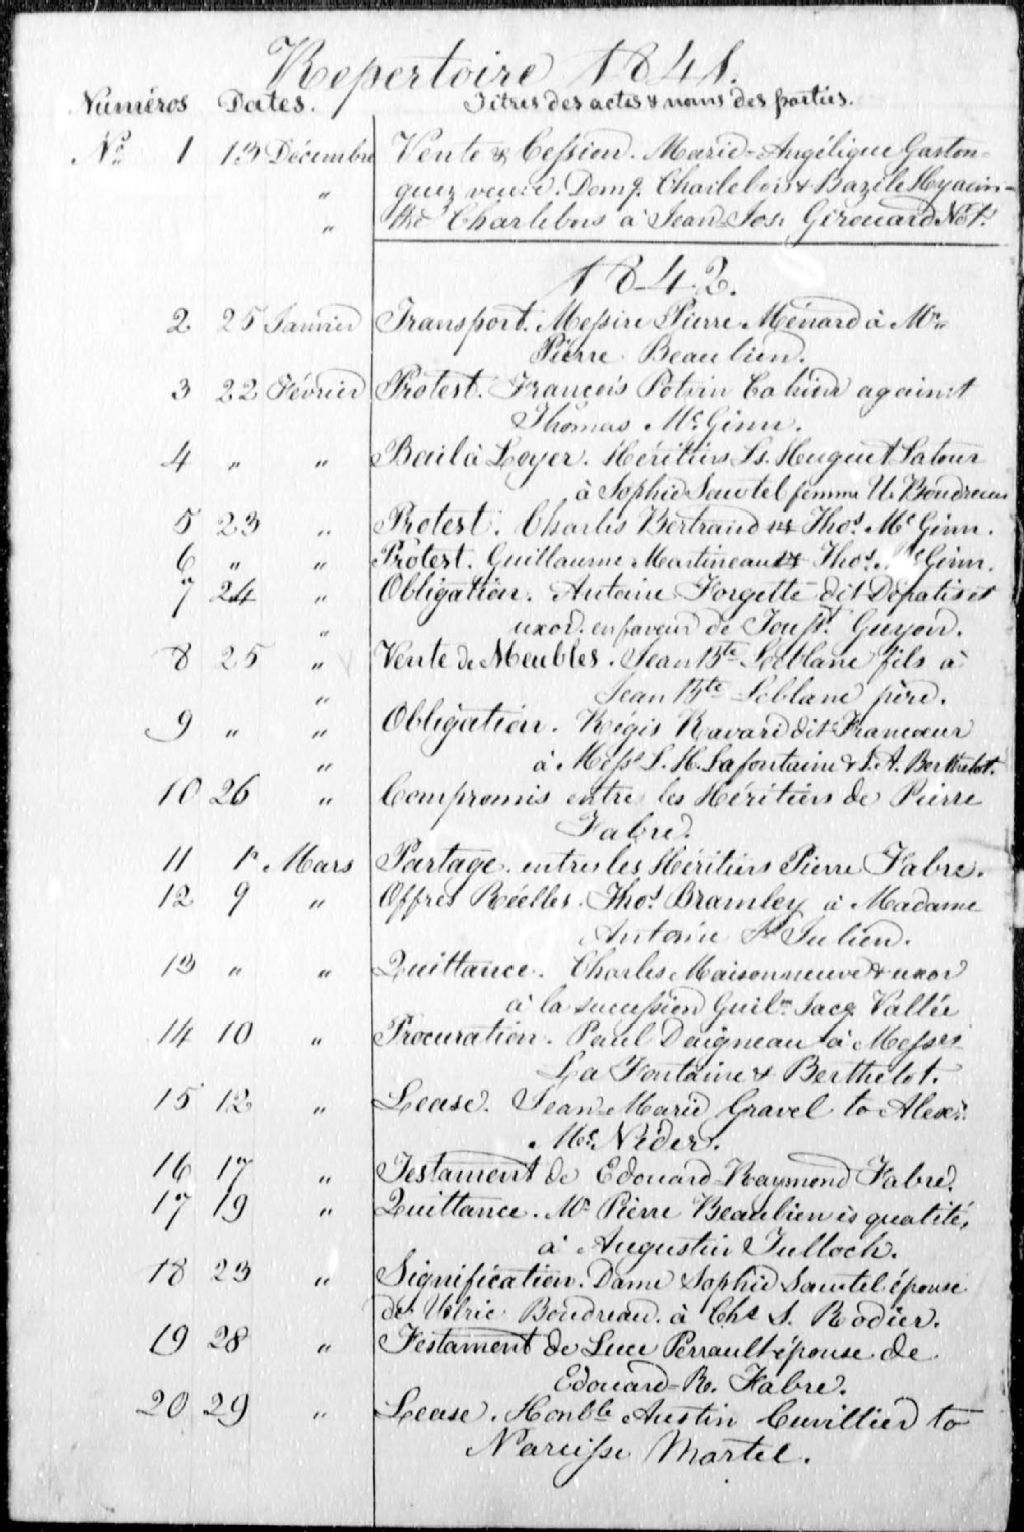 Repertoire 1841.
Numéros Dates. Titres des actes & noms des parties.
No. 1 13 Décembre Vente & Cession. Marie-Angélique Gaston-
" guez veuve. Domq. Charlebois & Bazile Hyacin-
" the Charlebois à Jean-Jos. Girouard Not.
1842.
2 25 Janvier Transport. Messire Pierre Ménard à Mr.
Pierre Beaulieu.
3 22 Février Protest. François Potvin against
Thomas McGinn.
4 " " Bail à Loyer. Héritiers Ls. Huguet Latour
à Sophie Sawtel femme U. Boudreau
5 23 " Protest. Charles Bertrand vs Thos. McGinn.
6 " " Protest. Guillaume Martineau vs Thos. McGinn.
7 24 " Obligation. Antoine Forgette dit Dépatis et
" uxor. en faveur de Tousst. Guyon.
8 25 " Vente de Meubles. Jean Bte Leblanc fils à
" Jean Bte Leblanc père.
9 " " Obligation. Régis Ravard dit Francœur
" à Messs. L. H. Lafontaine & J. A. Berthelot.
10 26 " Compromis entre les Héritiers de Pierre
Fabre.
11 1r Mars Partage. entre les Héritiers Pierre Fabre.
12 9 " Offres Réelles. Thos. Bramley à Madame
Antoine St Julien.
13 " " Quittance. Charles Maisonneuve & uxor
à la succession Guilm. Jacq. Vallée
14 10 " Procuration. Paul Daigneau à Messrs
La Fontaine & Berthelot.
15 12 " Lease. Jean-Marie Gravel to Alexr.
Mc. Nider.
16 17 " Testament de Edouard-Raymond Fabre.
17 19 " Quittance. Mr Pierre Beaubien ès qualité,
à Augustin Tulloch.
18 23 " Signification. Dame Sophie Sawtel épouse
de Ulric Boudreau. à Chs S. Rodier.
19 28 " Testament de Luce Perrault épouse de
Edouard-R. Fabre.
20 29 " Lease. Honble Austin Cuvillier to
Narcisse Martel.